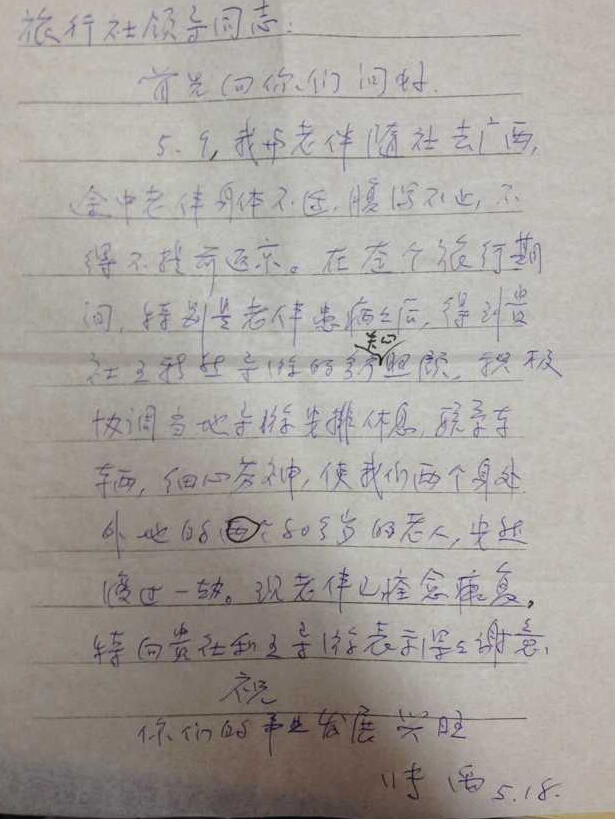 旅行社领导同志：
首先向你们问好．
5.9，我与老伴随社去广西，
途中老伴身体不适，腹泻不止，不
得不提前返京。在在个旅行期
间，特别是老伴患病之后，得到贵
社王 导游的 关心照顾，积极
协调当地导游安排休息，联系车
辆，细心劳神，使我们两个身处
外地的 80多岁的老人，安然
渡过一劫。现老伴已痊愈康复，
特向贵社和王导游表示深深谢意，
祝
你们的事业发展兴旺
5.18.